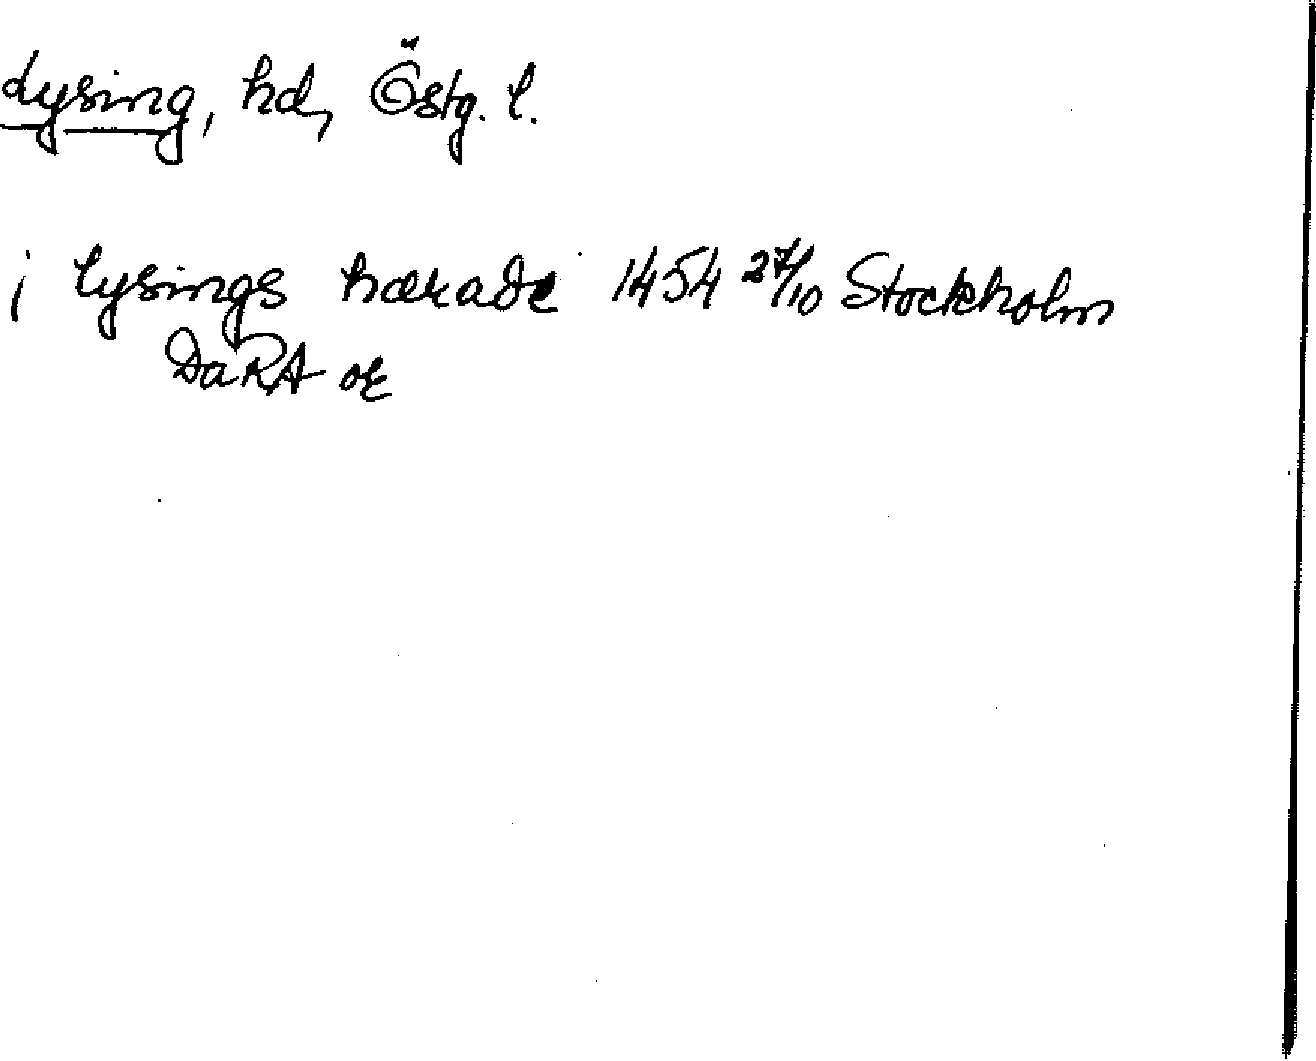 Lysing, hd, Östg. l.
i lysings hærade 1454 27/10 Stockholm
DaRA or